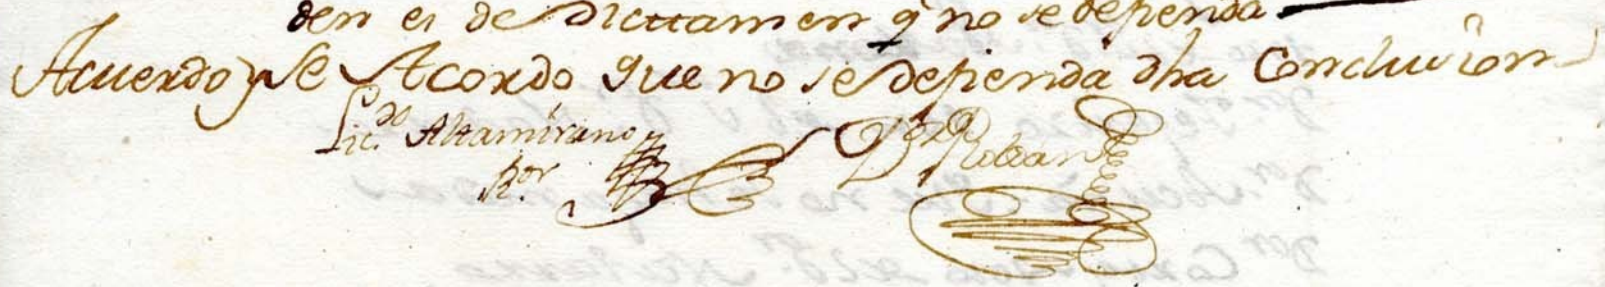 den es de Dicttamen q̃ no se defienda
Acuerdo y Se Acordo que no se defienda dha Conclusion
Lic.do Altamirano
R.or
D.r Roldan